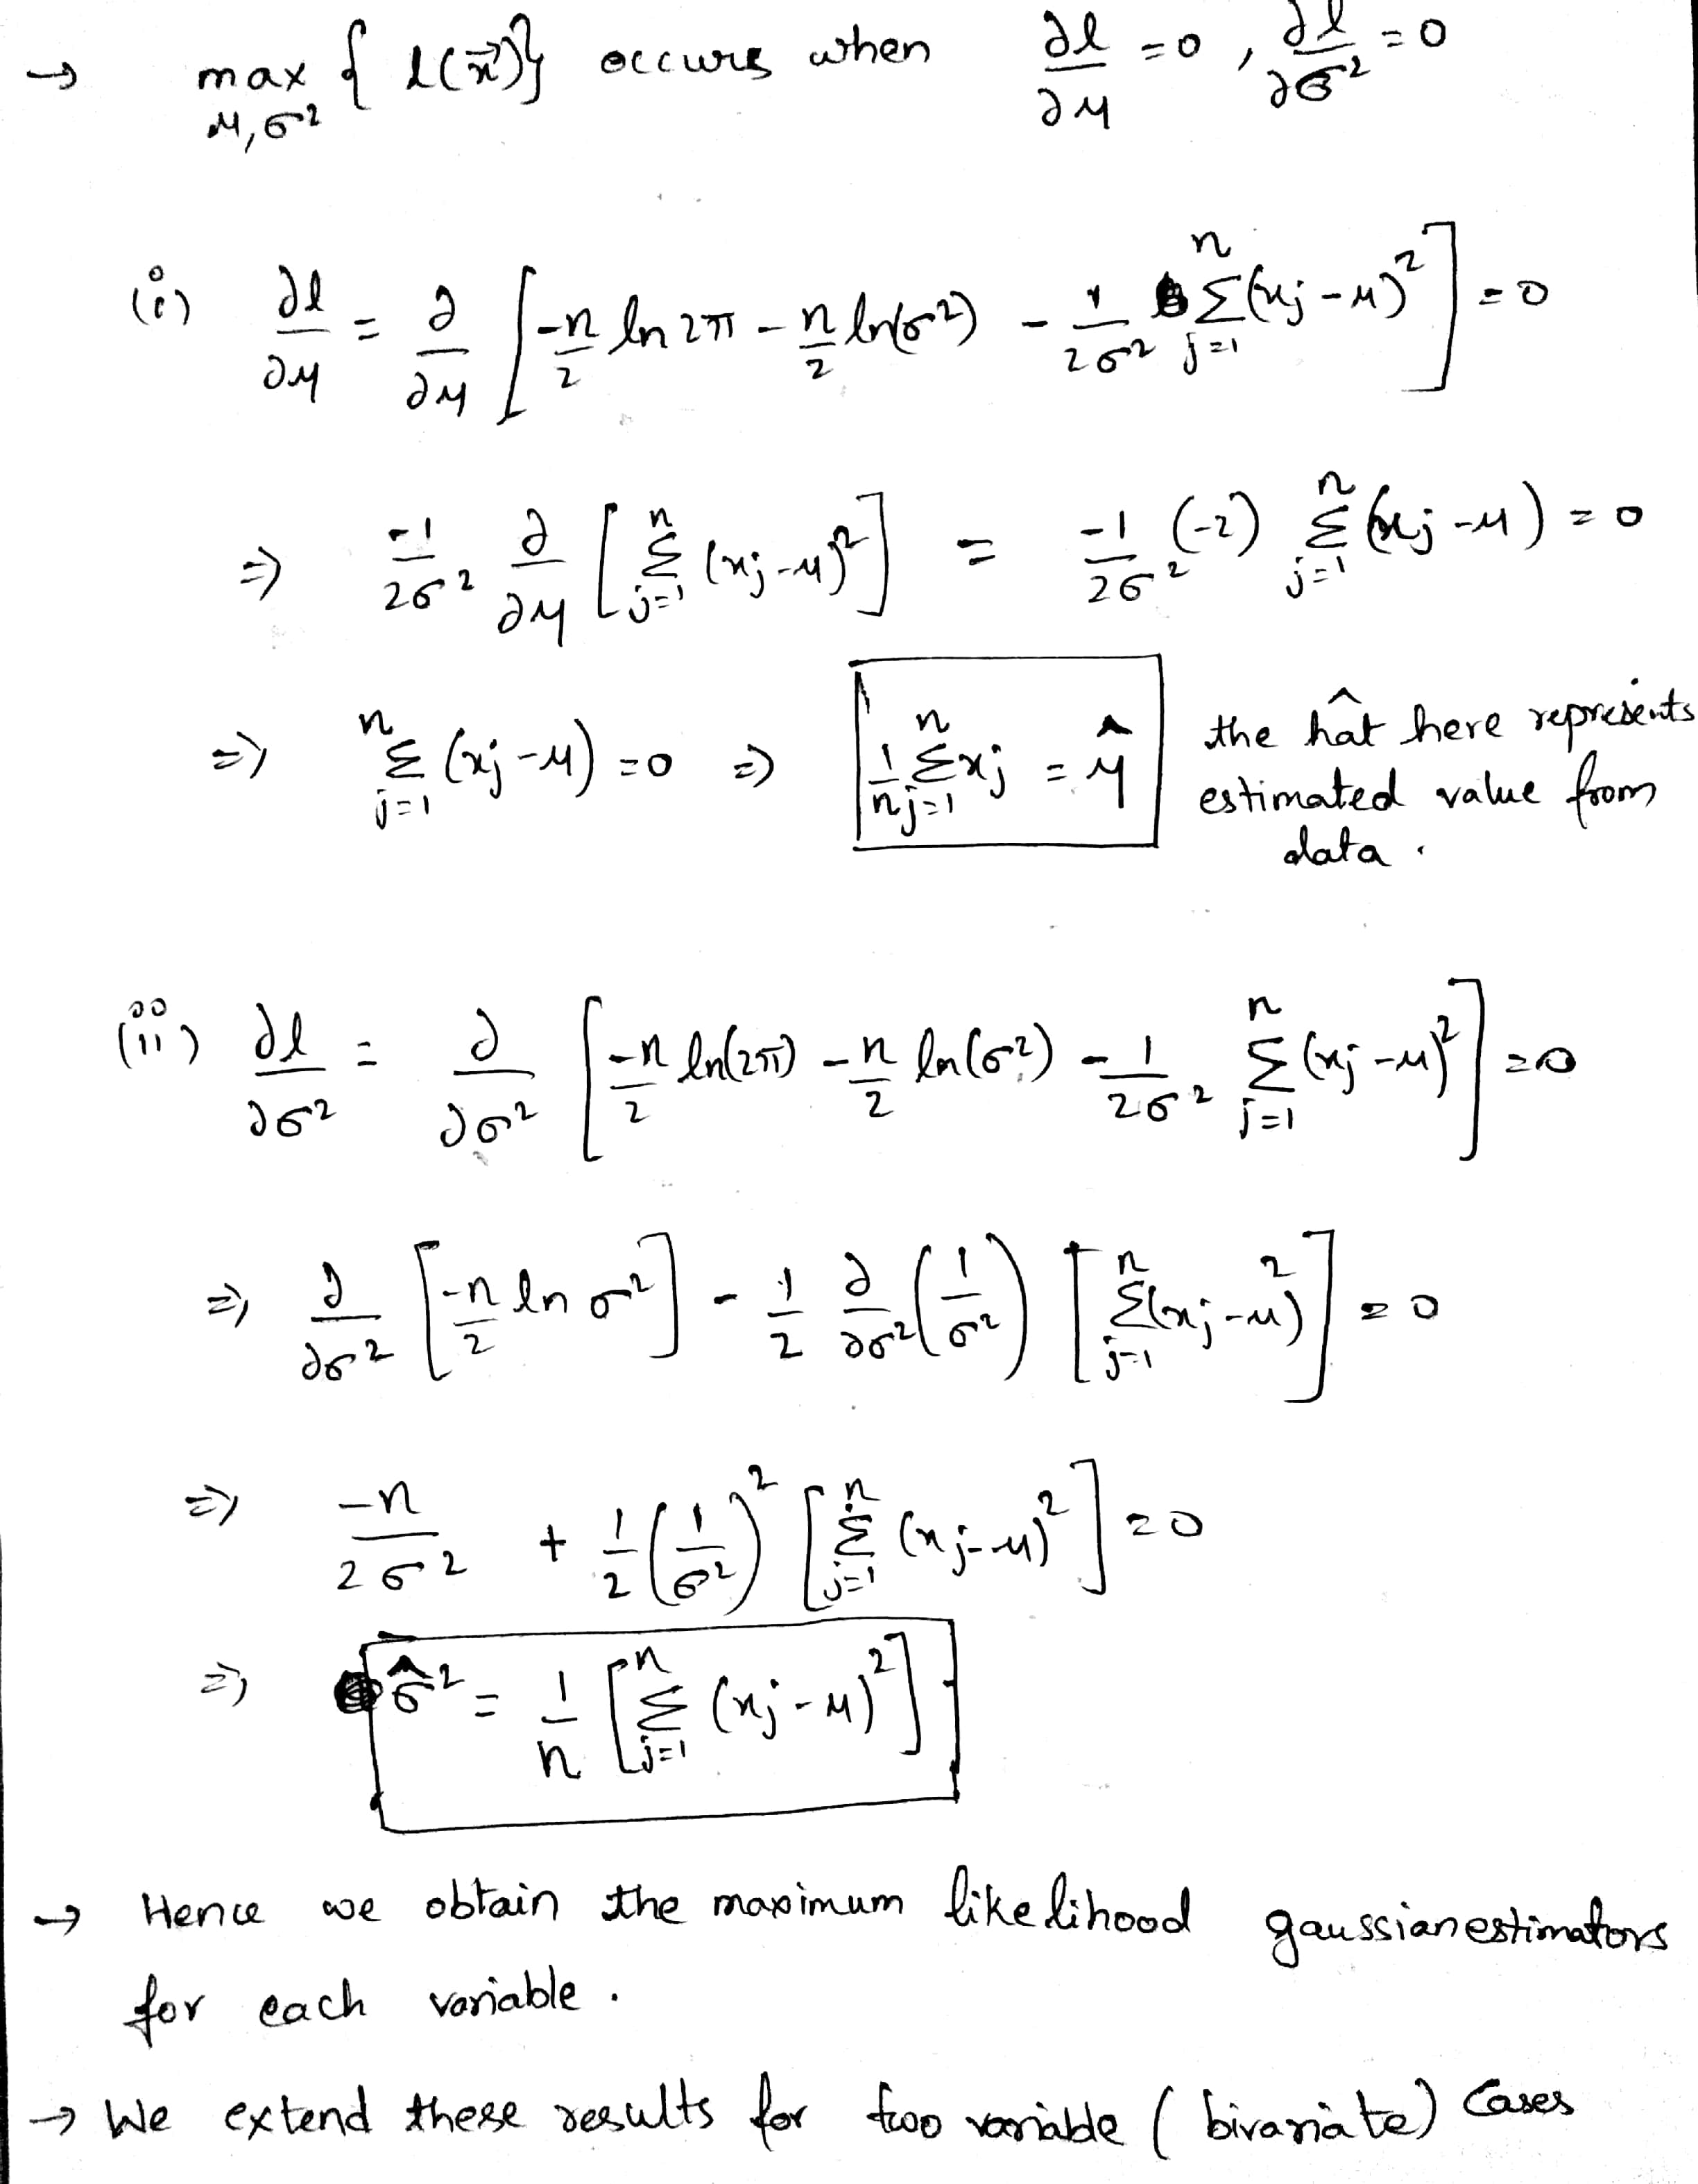 → max_{μ,σ²} { l(x⃗) } occurs when ∂l/∂μ = 0 , ∂l/∂σ² = 0
(i) ∂l/∂μ = ∂/∂μ [ -n/2 ln 2π - n/2 ln(σ²) - 1/2σ² Σ_{j=1}^{n} (xj - μ)² ] = 0
⇒ -1/2σ² ∂/∂μ [ Σ_{j=1}^{n} (xj - μ)² ] = -1/2σ² (-2) Σ_{j=1}^{n} (xj - μ) = 0
⇒ Σ_{j=1}^{n} (xj - μ) = 0 ⇒ 1/n Σ_{j=1}^{n} xj = μ̂
the hat here represents
estimated value from
data .
(ii) ∂l/∂σ² = ∂/∂σ² [ -n/2 ln(2π) - n/2 ln(σ²) - 1/2σ² Σ_{j=1}^{n} (xj - μ)² ] = 0
⇒ ∂/∂σ² [ -n/2 ln σ² ] - 1/2 ∂/∂σ² (1/σ²) [ Σ_{j=1}^{n} (xj - μ)² ] = 0
⇒ -n/2σ² + 1/2 (1/σ²)² [ Σ_{j=1}^{n} (xj - μ)² ] = 0
⇒ σ̂² = 1/n [ Σ_{j=1}^{n} (xj - μ)² ]
→ Hence we obtain the maximum likelihood gaussian estimators
for each variable .
→ We extend these results for two variable ( bivariate) Cases